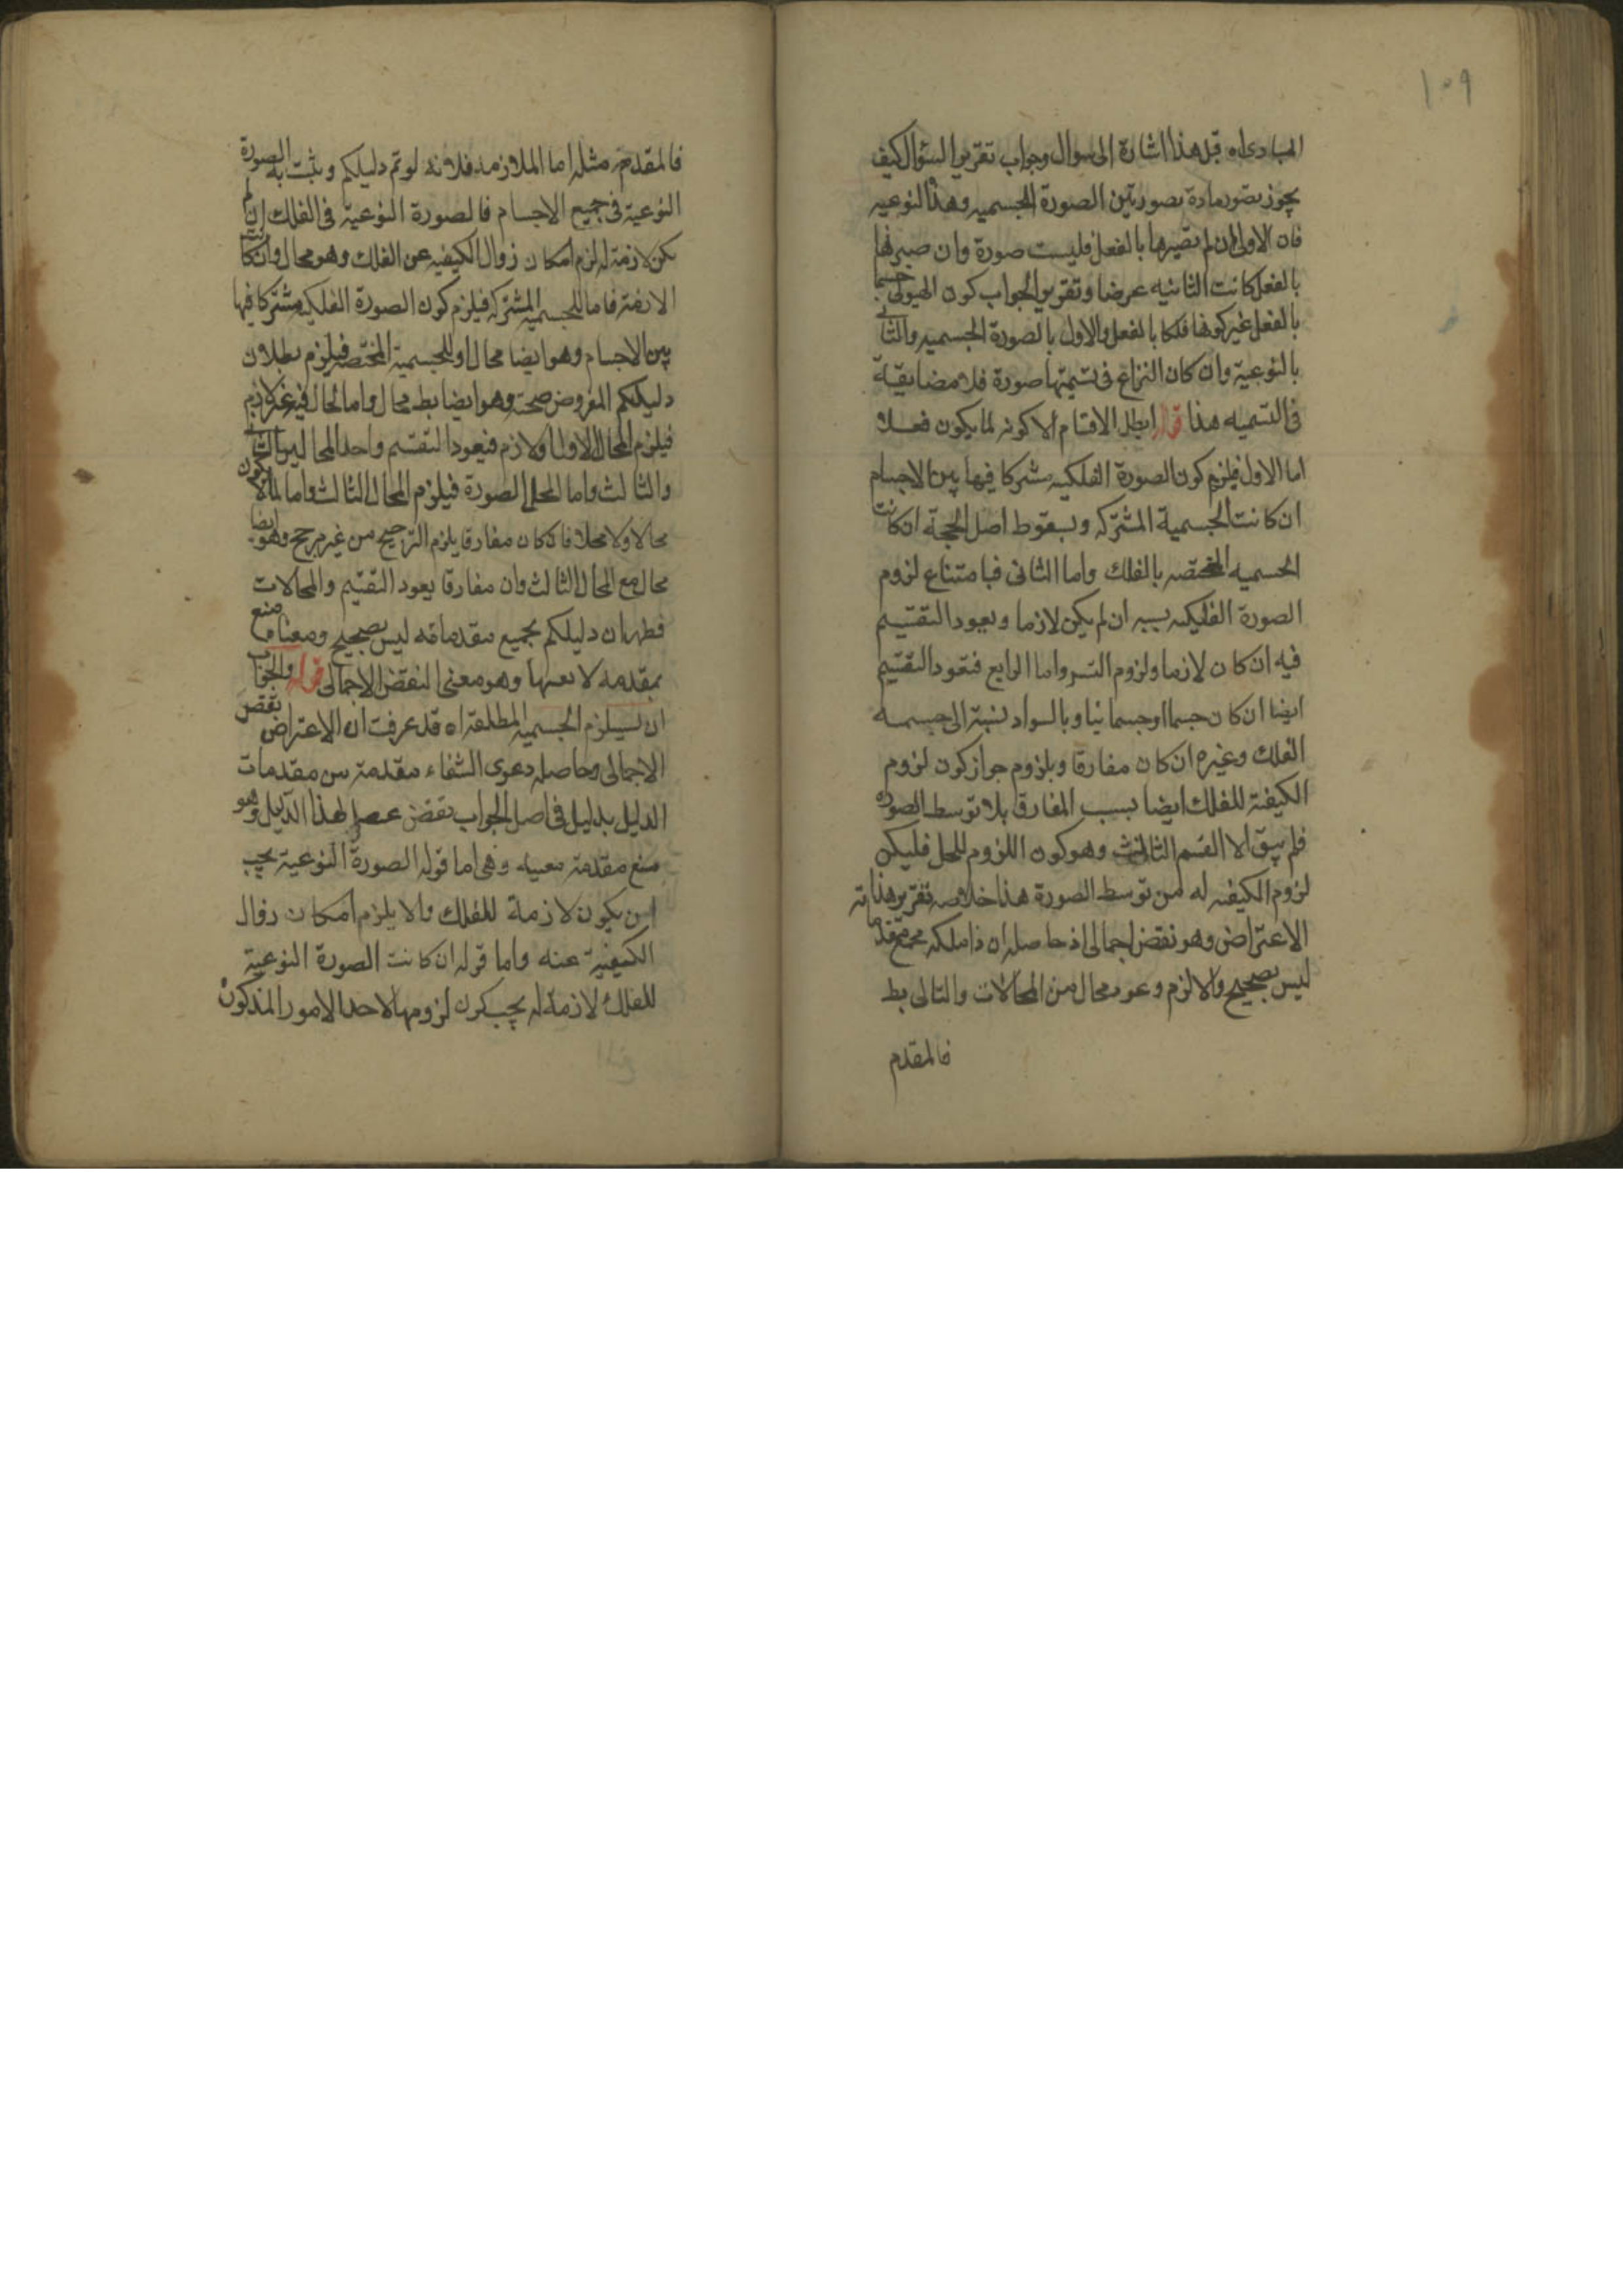 ١٠٩
المبادى اه قيل هذا اشارة الى سوال وجواب تقرير السؤال كيف
يجوز تصور مادة بصورتين الصورة الجسميه وهذه النوعيه
فان الاولى ان لم يصيرها بالفعل فليست صورة وان صيرتها
بالفعل كانت الثانيه عرضا وتقرير الجواب كون الهيولى جسما
بالفعل غير كونها فلكا بالفعل والاول بالصورة الجسميه والثانى
بالنوعية وان كان النزاع فى تسميتها صورة فلا مضايقة
فى التسميه هذا قوله ابطل الاقسام الا كونه لما يكون فعلا
اما الاول فيلزم كون الصورة الفلكيه مشتركا فيها بين الاجسام
ان كانت الجسمية المشتركه وبسقوط اصل الحجة ان كانت
الجسميه المختصه بالفلك واما الثانى فبامتناع لزوم
الصورة الفلكيه بسببه ان لم يكن لازما وبعود التقسيم
فيه ان كان لازما ولزوم التسـ واما الرابع فتعود التقسيم
ايضا ان كان جسما او جسمانيا وبالسواد نسبته الى جسمه
الفلك وغيره ان كان مفارقا وبلزوم جواز كون لزوم
الكيفية للفلك ايضا بسبب المفارق بلا توسط الصوره
فلم يبق الا القسم الثالث وهو كون اللزوم للمحل فليكن
لزوم الكيفيه له من توسط الصورة هذا خلاصه تقرير هذا
الاعتراض وهو نقض اجمالى اذ حاصله ان ذا ملكه بجميع مقدماته
ليس بصحيح والا لزم وعو محال من المحالات والتالى بط
فالمقدم
فالمقدم مثله اما الملازمة فلانه لو تم دليلكم ويثبت به الصورة
النوعية فى جميع الاجسام فالصورة النوعية فى الفلك ان لم
يكن لازمة له لزم امكان زوال الكيفيه عن الفلك وهو محال وان كانت
الازمة فاما للجسمية المشتركه فيلزم كون الصورة الفلكيه مشتركا فيها
بين الاجسام وهو ايضا محال او للجسمية المختصه فيلزم بطلان
دليلكم المفروض صحته وهو ايضا بط محال واما لحال فيه غير لازم
فيلزم المحال الاول او لازم فيعود التقسيم واحد المحالين الثانى
والثالث واما لمحل الصورة فيلزم المحال الثالث واما لما لا يكون
حالا ولا محلا فان كان مفارقا يلزم الترجيح من غير مرجح وهو ايضا
محال مع المحال الثالث وان مفارقا يعود التقسيم والمحالات
فظهر ان دليلكم بجميع مقدماته ليس بصحيح ومعناه منع
بمقدمه لا بعينها وهو معنى النقض الاجمالى قوله والجواب
ان يستلزم الجسميه المطلقة اه قد عرفت ان الاعتراض نقض
الاجمالى وحاصله دعوى الشفاء مقدمة من مقدمات
الدليل بدليل فى اصل الجواب نقض لهذا الدليل وهو
منع مقدمة معينه وهى اما قوله الصورة النوعية يجب
ان يكون لازمة للفلك والا يلزم امكان زوال
الكيفية عنه واما قوله ان كانت الصورة النوعية
للفلك لازمة له يجب كون لزومها لاحد الامور المذكورة